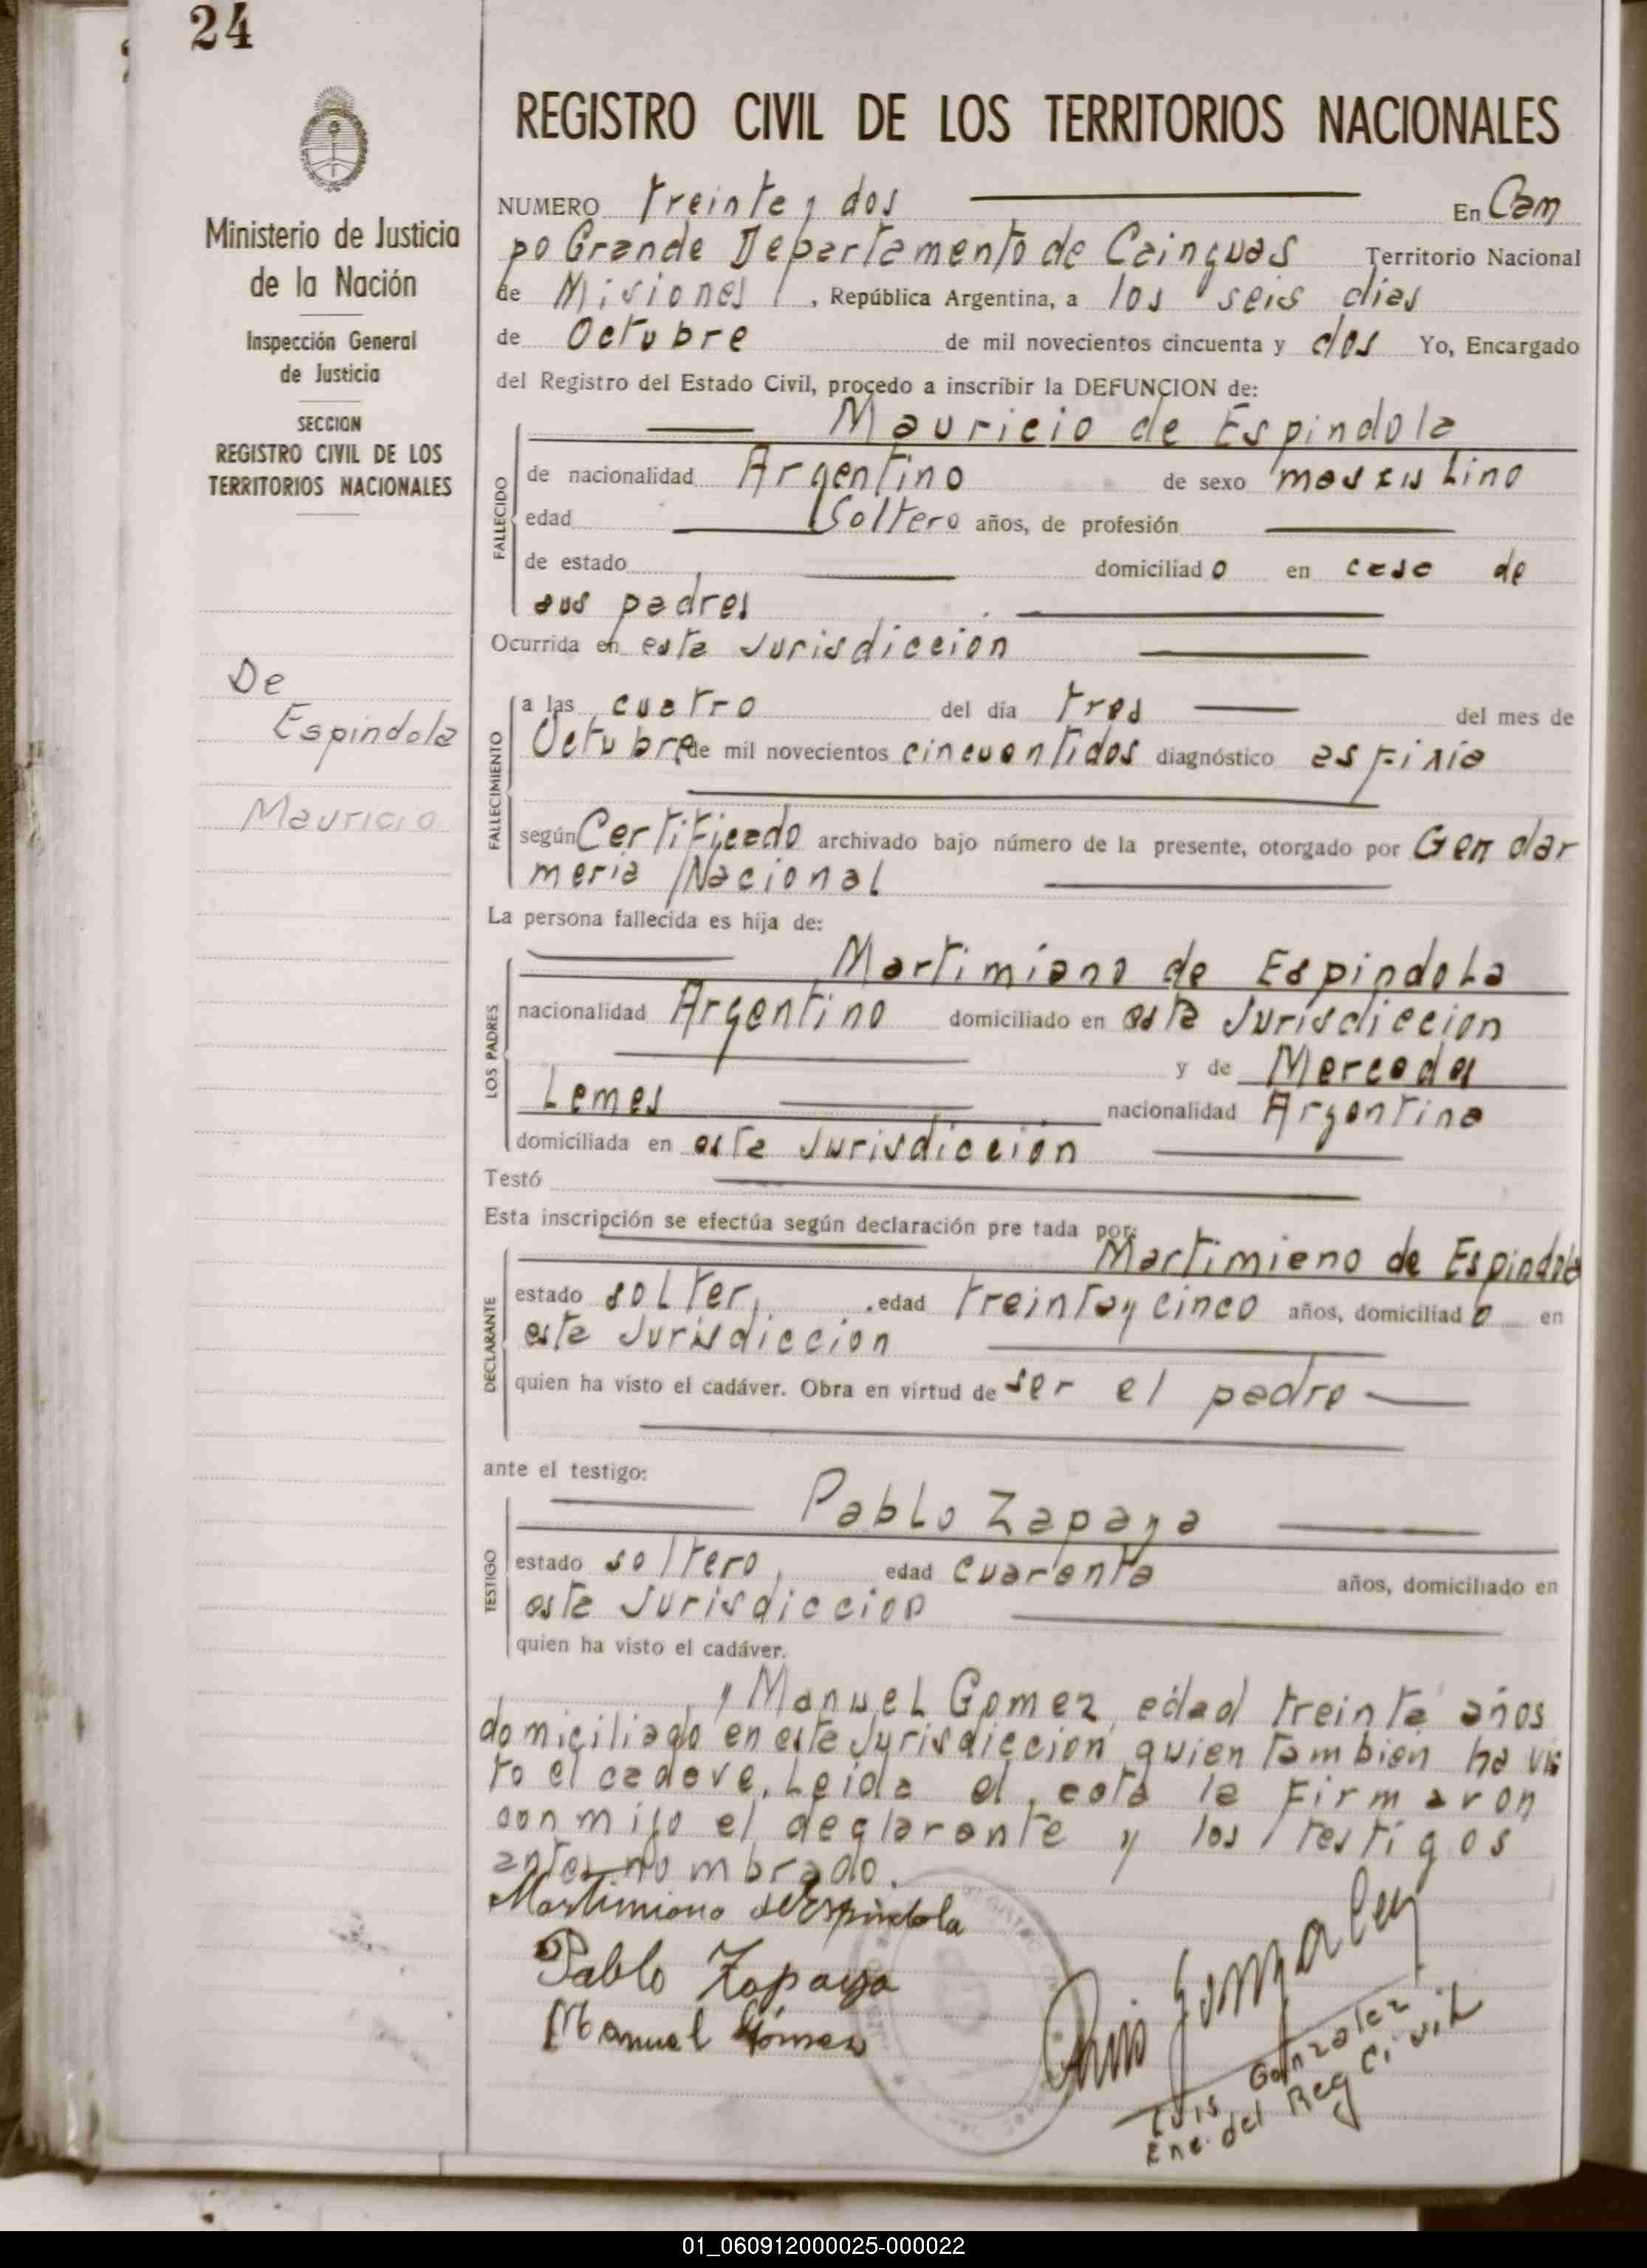 24
Ministerio de Justicia
de la Nación
Inspección General
de Justicia
SECCION
REGISTRO CIVIL DE LOS
TERRITORIOS NACIONALES
De
Espindola
Mauricio
REGISTRO CIVIL DE LOS TERRITORIOS NACIONALES
NUMERO treinte y dos En Cam
po Grande Departamento de Cainguas Territorio Nacional
de Misiones, República Argentina, a los seis dias
de Octubre de mil novecientos cincuenta y dos Yo, Encargado
del Registro del Estado Civil, procedo a inscribir la DEFUNCION de:
Mauricio de Espindola
FALLECIDO
de nacionalidad Argentino de sexo masculino
edad Soltero años, de profesión
de estado domiciliado en casa de
sus padres
Ocurrida en esta Jurisdiccion
FALLECIMIENTO
a las cuatro del día tres del mes de
Octubre de mil novecientos cincuentidos diagnóstico asfixia
según Certificado archivado bajo número de la presente, otorgado por Gendar
meria Nacional
La persona fallecida es hija de:
LOS PADRES
Martimiano de Espindola
nacionalidad Argentino domiciliado en esta Jurisdiccion
y de Mercedes
Lemes nacionalidad Argentina
domiciliada en esta Jurisdiccion
Testó
Esta inscripción se efectúa según declaración pre tada por:
Martimieno de Espindola
DECLARANTE
estado solter, edad treintay cinco años, domiciliado en
esta Jurisdiccion
quien ha visto el cadáver. Obra en virtud de ser el padre
ante el testigo:
TESTIGO
Pablo Zapaya
estado soltero, edad cuarenta años, domiciliado en
esta Jurisdiccion
quien ha visto el cadáver.
, Manuel Gomez, edad treinta años
domiciliado en esta Jurisdiccion quien tambien ha vis
to el cadave. Leida el cota la Firmaron
conmigo el declarante y los testigos
antes nombrado.
Martimiano de Espindola
Pablo Zapaya
Manuel Gómez
Luis Gonzalez
Luis Gonzalez
Enc. del Reg Civil
01_060912000025-000022